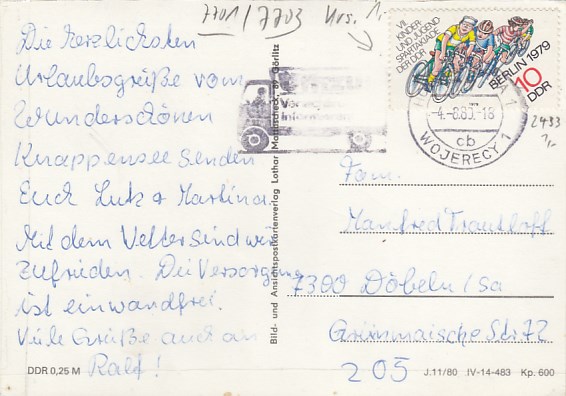 7701/7703 Krs. 1,-
VII.
KINDER-
UND JUGEND
SPARTAKIADE
DER DDR
BERLIN 1979
10
DDR
-4.-8.80.-18
cb
WOJERECY 1
2433
1,-
Die herzlichsten
Urlaubsgrüße vom
Wunderschönen
Knappensee senden
Euch Lutz + Martina.
Mit dem Wetter sind wir
zufrieden. Die Versorgung
ist einwandfrei.
Viele Grüße auch an
Ralf!
DDR 0,25 M
Bild- und Ansichtspostkartenverlag Lothar 89 Görlitz
Fam.
Manfred Trauthoff
7300 Döbeln/Sa
Grimmaische Str. 72
205
J.11/80 IV-14-483 Kp. 600